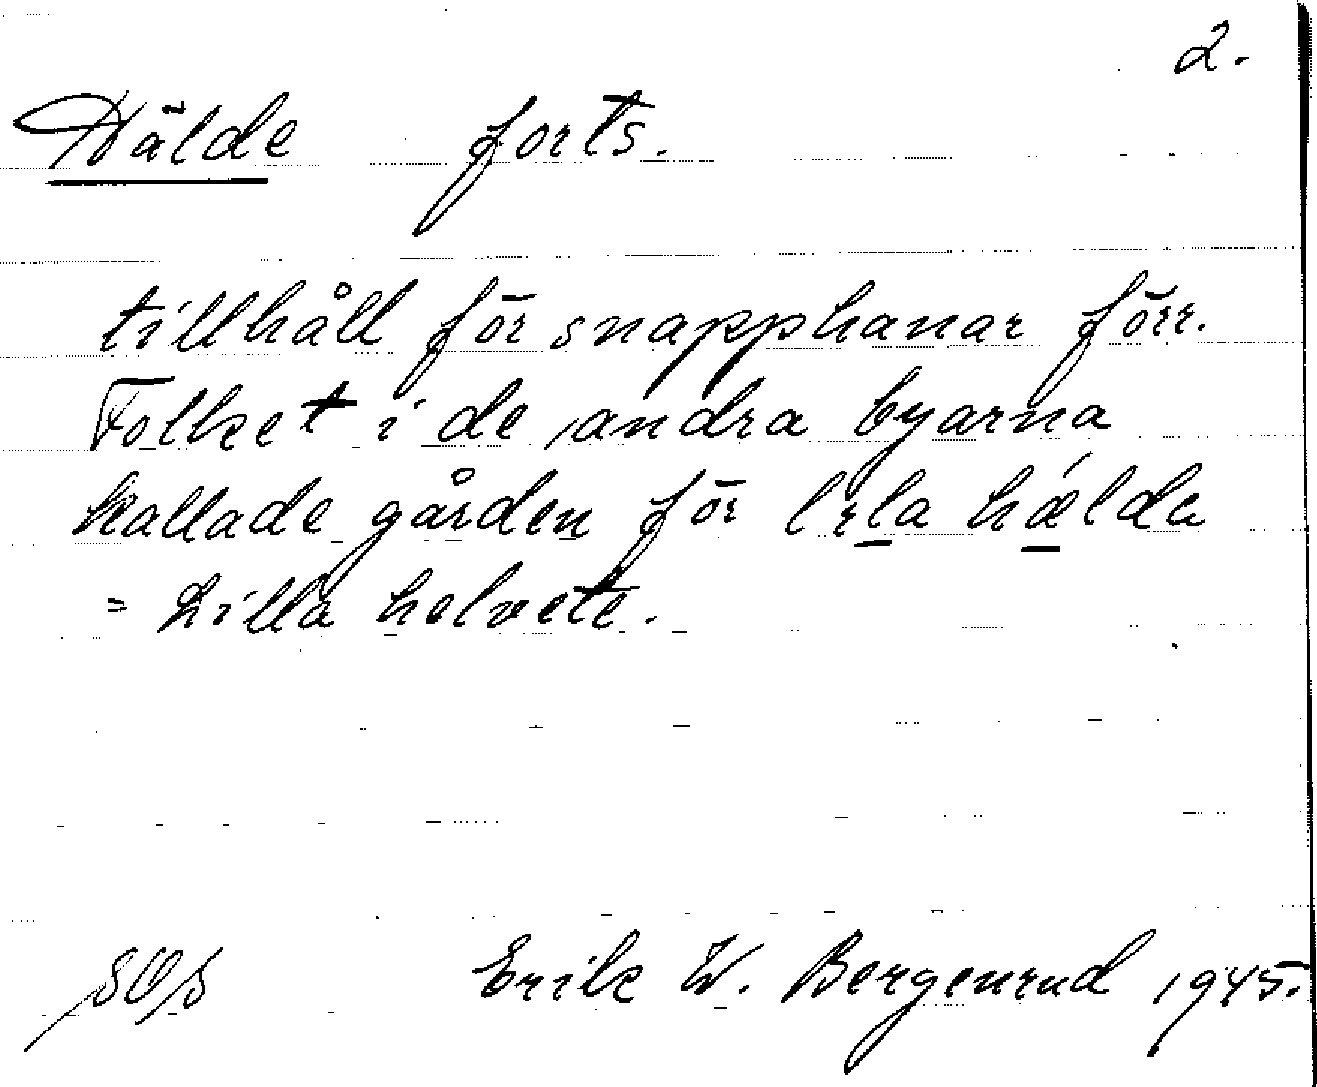 2.
Hälde forts.
tillhåll för snapphanar förr.
Folket i de andra byarna
kallade gården för hälda
= Lilla helvete.
Erik W. Bergenrud 1945.